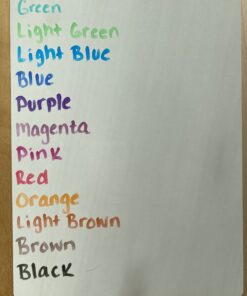 Green
Light Green
Light Blue
Blue
Purple
Magenta
Pink
Red
Orange
Light Brown
Brown
Black